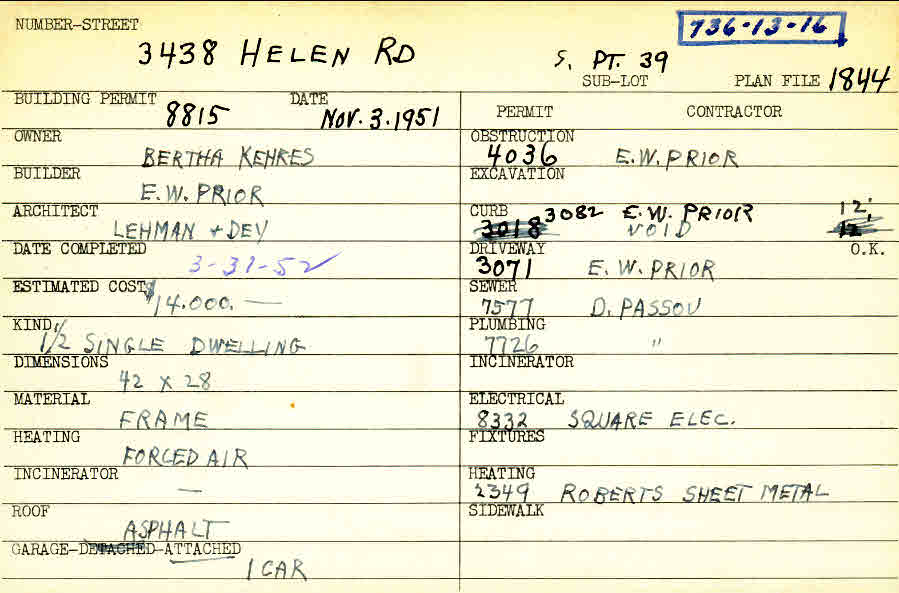 NUMBER-STREET
736-13-16
3438 HELEN RD
S. PT. 39
SUB-LOT
PLAN FILE 1844
BUILDING PERMIT 8815 DATE Nov. 3. 1951
OWNER
BERTHA KEHRES
BUILDER
E.W. PRIOR
ARCHITECT
LEHMAN + DEV
DATE COMPLETED
3-31-52
ESTIMATED COST
$14.000. —
KIND
1 1/2 SINGLE DWELLING
DIMENSIONS
42 x 28
MATERIAL
FRAME
HEATING
FORCED AIR
INCINERATOR
—
ROOF
ASPHALT
GARAGE-DETACHED-ATTACHED
1 CAR
PERMIT CONTRACTOR
OBSTRUCTION
4036 E.W. PRIOR
EXCAVATION
CURB 3082 E.W. PRIOR 12'
3018 VOID 12
DRIVEWAY O.K.
3071 E.W. PRIOR
SEWER
7577 D. PASSOV
PLUMBING
7726 "
INCINERATOR
ELECTRICAL
8332 SQUARE ELEC.
FIXTURES
HEATING
2349 ROBERTS SHEET METAL
SIDEWALK